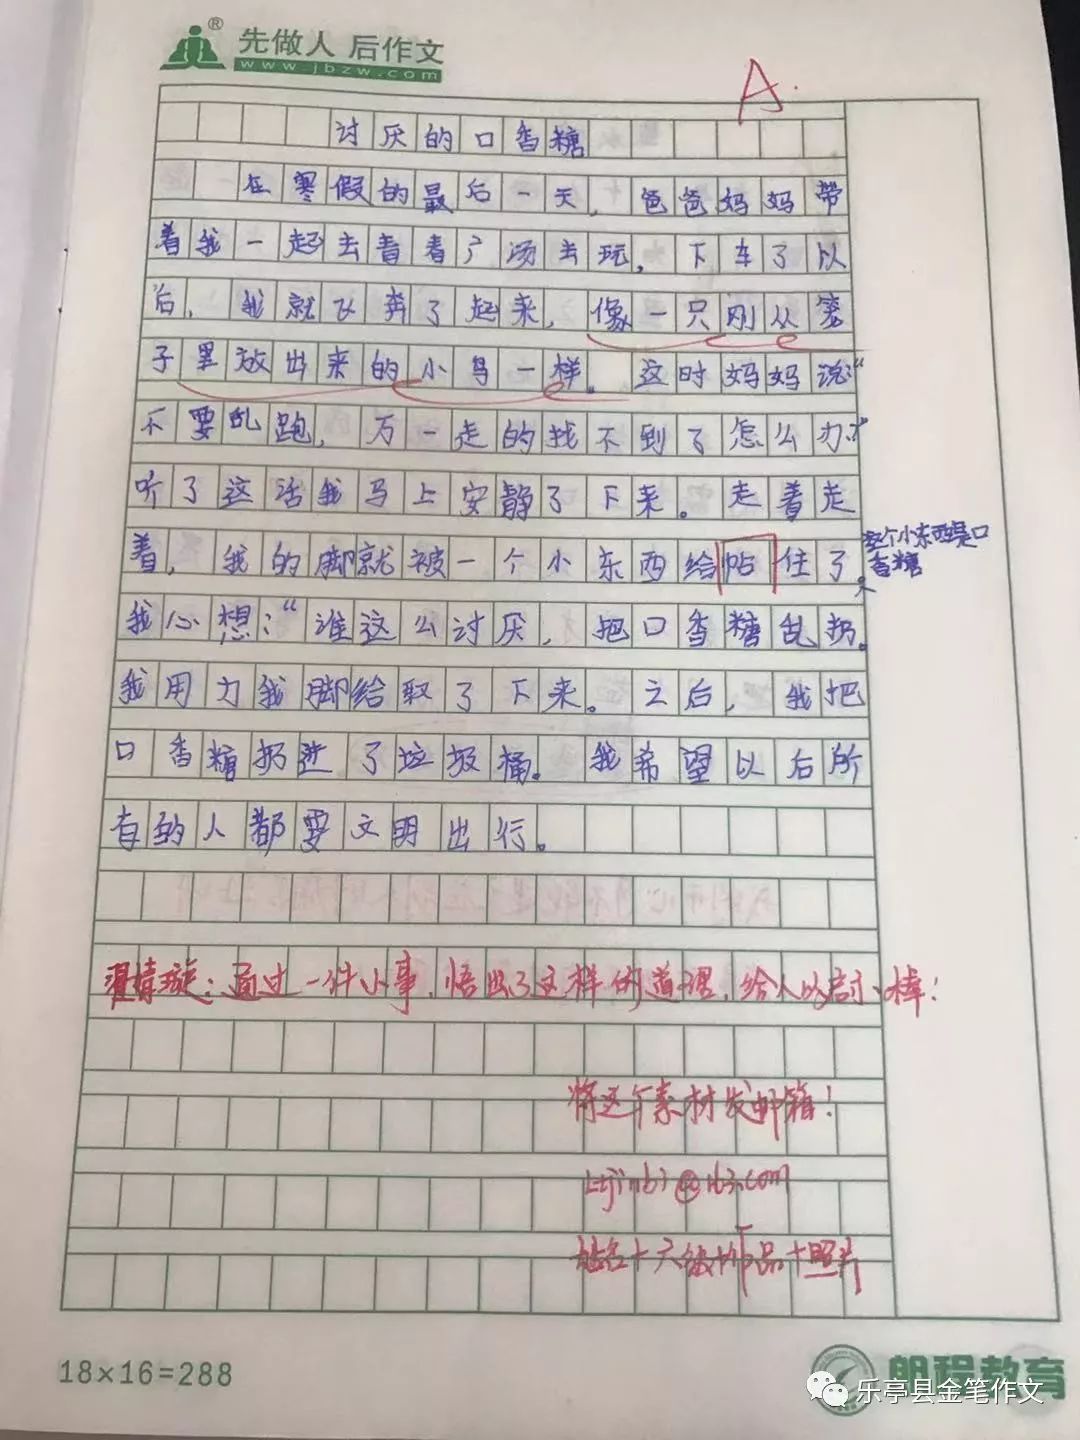 先做人 后作文
www.jbzw.com
A.
讨厌的口香糖
在寒假的最后一天，爸爸妈妈带
着我一起去青春广场去玩，下车了以
后，我就飞奔了起来，像一只刚从笼
子里放出来的小鸟一样。这时妈妈说:“
不要乱跑，万一走的找不到了怎么办?”
听了这话我马上安静了下来。走着走
着，我的脚就被一个小东西给帖住了。
这个小东西是口
香糖
我心想:“谁这么讨厌，把口香糖乱扔。
我用力我脚给取了下来。之后，我把
口香糖扔进了垃圾桶。我希望以后所
有的人都要文明出行。
婧璇:通过一件小事，悟出了这样的道理，给人以启示，棒!
将这个素材发邮箱!
ltjinbi@163.com
姓名+六级+作品+照片
18×16=288
朗程教育
乐亭县金笔作文